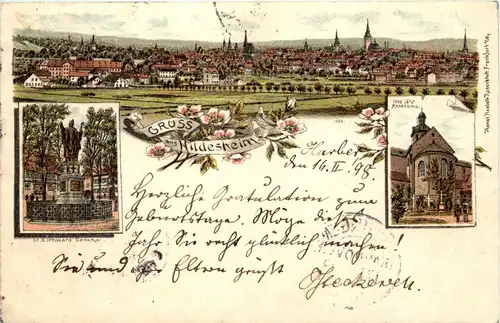 GRUSS
aus Hildesheim
1000 jähr.
Rosenstock.
St. Bernward Denkmal.
den 16. II. 98.
Herzliche Gratulation zum
Geburtstage. Möge dieses
Jahr Sie recht glücklich machen!
Sie und Eltern grüßt